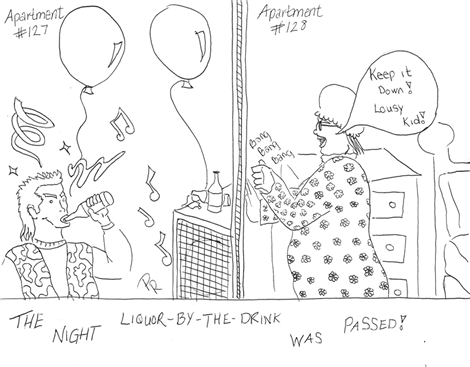 Apartment
#127
Apartment
#128
Keep it
Down!
Lousy
Kid!
Bang
Bang
Bang
THE NIGHT LIQUOR-BY-THE-DRINK WAS PASSED!